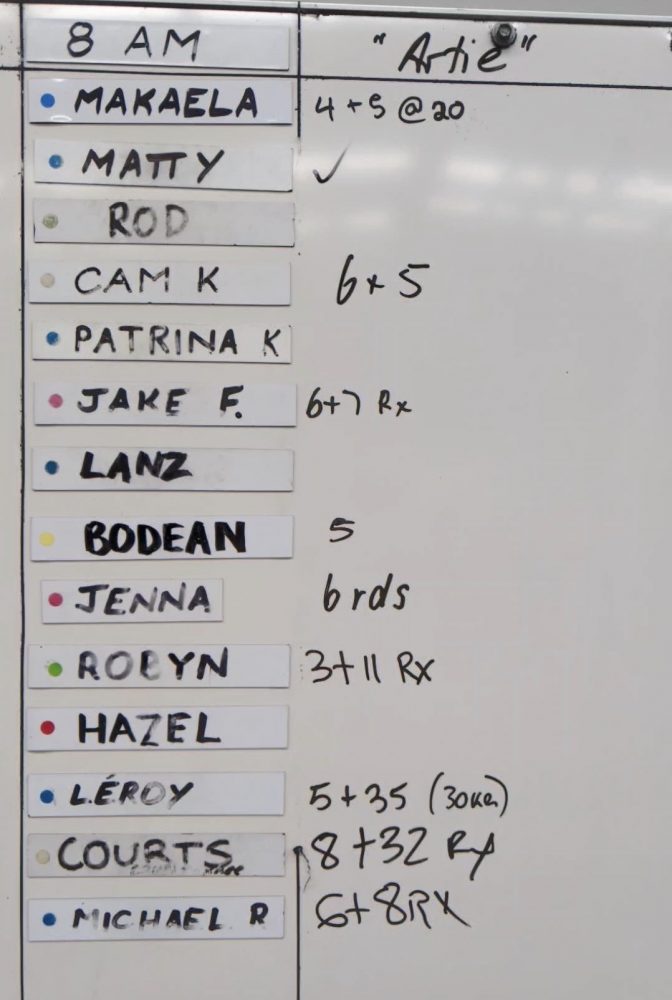 8 AM "Artie"
MAKAELA 4+5 @ 20
MATTY ✓
ROD
CAM K 6+5
PATRINA K
JAKE F. 6+7 Rx
LANZ
BODEAN 5
JENNA 6 rds
ROBYN 3+11 Rx
HAZEL
LÉROY 5+35 (30kg)
COURTS 8+32 Rx
MICHAEL R 6+8 RX